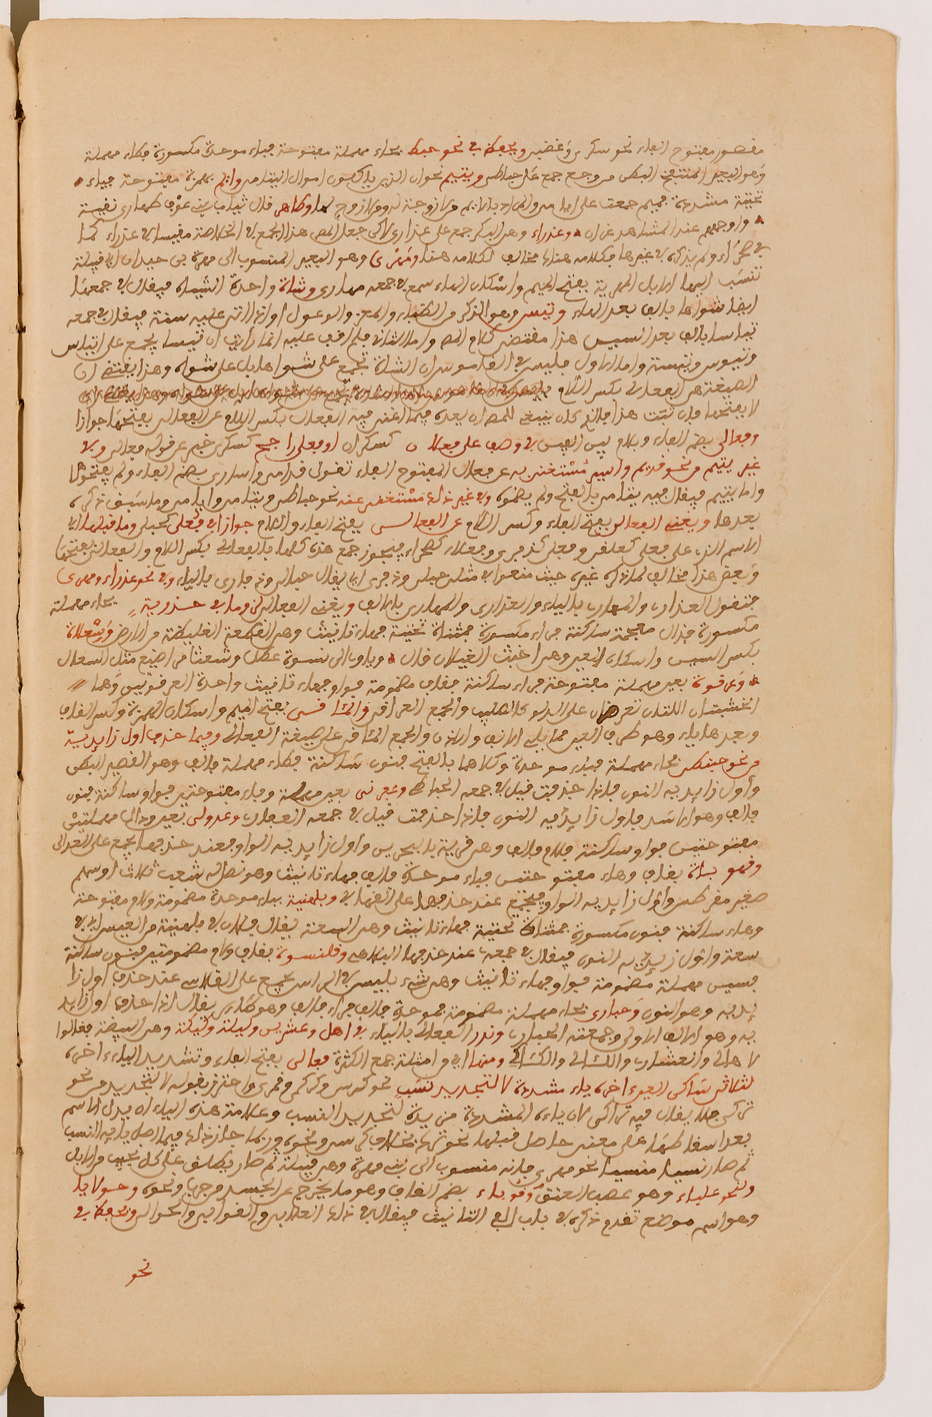 مقصور مفتوح الفاء نحو سكرى وغضبى ويحفظ في نحو حبط بحاء مهملة مفتوحة فباء موحدة مكسورة فطاء مهملة
وهو البعير المنتفخ البطن من وجع جمع على حباطى ويتيم نحو ان الذين ياكلون اموال اليتامى وايم بهمزة مفتوحة فياء
تحتية مشددة فميم جمعت على ايامى والمراد بالايم من لا زوجة له ومن لا زوج لها وطاهر قال ثياب بني عوف طهارى نقية
واوجههم عند المشاهد غران وعذراء وهي البكر جمع على عذارى
صحراء ولم يذكره في غيرها فكلامه هنا مخالف لكلامه هنا ومهرى وهو البعير المنسوب الى مهرة بن حيدان ابي قبيلة
تنسب اليها الابل المهرية بفتح الميم واسكان الهاء سمع في جمعه مهارى وشاة واحدة الشياه فيقال في جمعها
ايضا شواها بالف بعد الهاء وتيس وهو الذكر من الظباء والمعز والوعول اذا اتى عليه سنة فيقال في جمعه
تياسا بالف بعد السين هذا مقتضى كلام المص واما الثاني فلم اقف عليه انما رايت ان تيسا يجمع على اتياس
وتيوس وتيسة واما الاول فليس في القاموس ان الشاة تجمع على شواها بل على شواه وهذا يقتضي ان
الصيغة هي الفعالي بكسر اللام
لا بفتحها فان ثبت هذا فالذي كان ينبغي للمص ان يعده فيما اغنى فيه الفعالى بكسر اللام عن الفعالى بفتحها جوازا
وفعالى بضم الفاء وبلام ليس الفيس في وصف على فعلان كسكران او فعلى راجح كسكرى خبر عن قوله فعالى وفي
غير يتيم من نحو قديم واسير مستغنى به عن فعالى المفتوح الفاء تقول قدامى واسارى بضم الفاء ولم يفتحوها
واما يتيم فيقال فيه يتامى بالفتح ولم يضموه وفي غير ذلك مستغنى عنه نحو حباطى ويتامى وايامى وما سبق ذكره
بعدها ويغني الفعالى بفتح الفاء وكسر اللام عن الفعالى بفتح الفاء واللام جوازا في فعلى كحبلى وما قبلها اي
الاسم الذي على فعلى كعلقى وفعلى كذفرى وفعلاء كصحراء فيجوز جمع هذه كلها بالفعالي بكسر اللام والفعالى بفتحها
وبعض هذا مخالف لما ذكره غيره حيث منعوا في مثل حبلى وذفرى ان يقال حبالي وذفاري بالياء وفي نحو عذراء ومهرى
فتقول العذاري والمهاري بالياء والعذارى والمهارى بالالف ويغني الفعالي في وما في حذرية بحاء مهملة
مكسورة فذال معجمة ساكنة فراء مكسورة فمثناة تحتية فهاء تانيث وهي القطعة الغليظة من الارض وسعلاة
بكسر السين واسكان العين وهي اخبث الغيلان قال وياوي الى نسوة عطل وشعثا مراضيع مثل السعالي
وعرقوة بعين مهملة مفتوحة فراء ساكنة فقاف مضمومة فواو فهاء تانيث واحدة العرقوتين وهما
الخشبتان اللتان تعرضان على الدلو كالصليب والجمع العراقي والماقي بفتح الميم واسكان الهمزة وكسر القاف
وبعدها ياء وهو طرف العين مما يلي الانف والاذن والجمع الماقي على صيغة الفعالي وفيما حذف اول زايديه
من نحو حبنطى بحاء مهملة فباء موحدة وكلاهما بالفتح فنون ساكنة فطاء مهملة فالف وهو القصير البطن
واول زايديه النون فاذا حذفت قيل في جمعه الحباطي وعفرنى بعين مهملة وفاء مفتوحتين فراء ساكنة فنون
فالف وهو الاسد فاول زايديه النون فاذا حذفت قيل في جمعه العفاري وعدولى بعين ودال مهملتين
مفتوحتين فواو ساكنة فلام فالف وهي قرية بالبحرين واول زايديه الواو فبعد حذفها يجمع على العدالي
وقهوباة بقاف وهاء مفتوحتين فباء موحدة فالف فهاء تانيث وهو نصل له شعب ثلاث او سهم
صغير مقرطس واول زايديه الواو فيجمع عند حذفها على القهابي وبلهنية بباء موحدة مضمومة ولام مفتوحة
وهاء ساكنة فنون مكسورة فمثناة تحتية فهاء تانيث وهي السعة يقال فلان في بلهنية من العيش اي في
سعة واول زايديه النون فيقال في جمعه عند حذفها البلاهي وقلنسوة بقاف ولام مضمومتين فنون ساكنة
فسين مهملة مضمومة فواو فهاء تانيث وهي شيء يلبس في الراس تجمع على القلاسي عند حذف اول زا
يديه وهو النون وحبارى بحاء مهملة مضمومة فموحدة فالف فراء فالف وهو طائر يقال اذا حذف اول زايد
يه وهو الالف الاولى وجمعته الحباري وندر الفعالي بالياء في اهل وعشرين وليلة وكيكة وهي البيضة فقالوا
لاهالي والعشاري والليالي والكياكي ومنها اي من امثلة جمع الكثرة فعالي بفتح الفاء وتشديد الياء اخره
لثلاثي ساكن العين اخره ياء مشددة لا لتجديد نسب نحو كرسي وكركي وقمري واحترز بقوله لا لتجديد من نحو
تركي فلا يقال فيه تراكي لان ياءه المشددة مزيدة لتجديد النسب وعلامة هذه الياء ان يدل الاسم
بعد اسقاطها على معنى حاصل قبلها نحو تركي بخلاف كرسي ونحوه وربما جاز ذلك فيما اصل يائه النسب
ثم صار نسيا منسيا نحو مهري فانه منسوب الى بني مهرة وهي قبيلة ثم صار يطلق على كل نجيب من الابل
ولنحو علباء وهو عصب العنق وقوباء بضم القاف وهو ما يخرج عن الجسد من جرب ونحوه وحولايا
وهو اسم موضع تقدم ذكره في باب الف التانيث فيقال في ذلك العلابي والقوابي والحوالي ويحفظ في
نحو